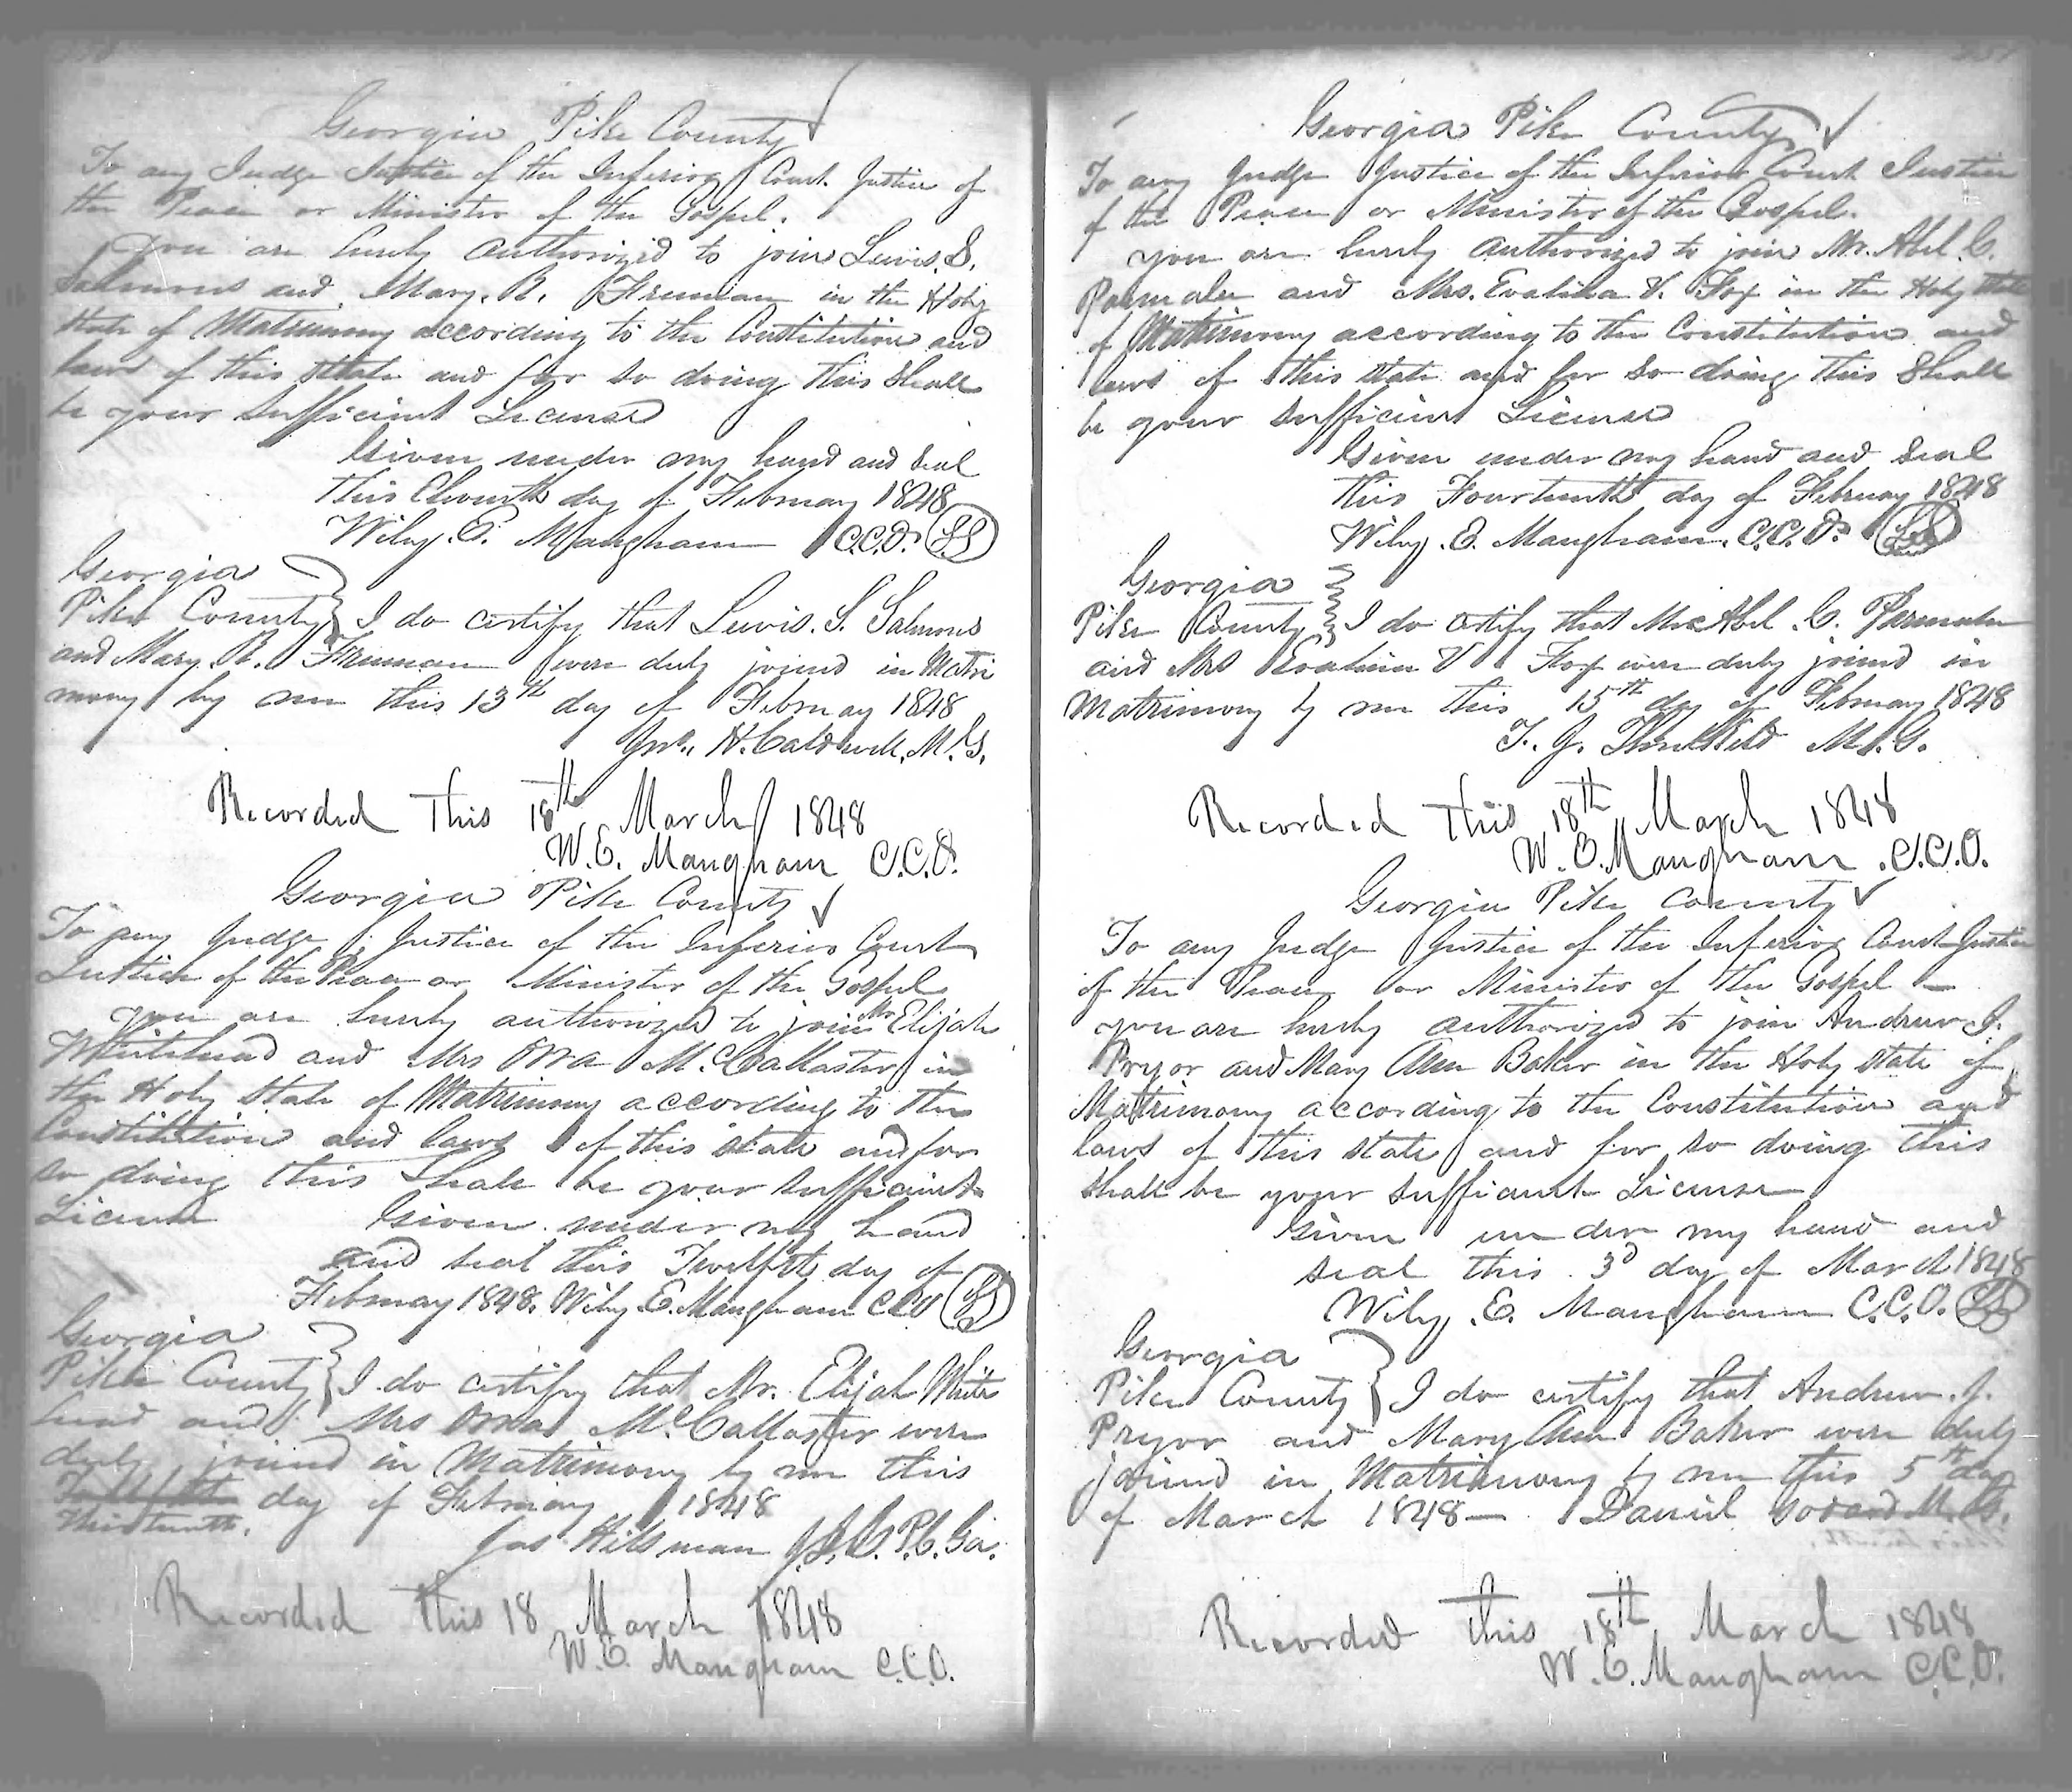 Georgia Pike County
To any Judge Justice of the Inferior Court Justice of
the Peace or Minister of the Gospel.
you are hereby authorized to join Lewis. S.
Salmons and Mary. R. Freeman in the Holy
State of Matrimony according to the Constitution and
laws of this State and for so doing this Shall
be your Sufficient License
Given under my hand and Seal
this Eleventh day of February 1848
Wiley. E. Mangham C.C.O. LS
Georgia
Pike County I do certify that Lewis. S. Salmons
and Mary. R. Freeman were duly joined in Matri
mony by me this 13th day of February 1848
Jno. H. Caldwell. M. G.
Recorded This 18th March 1848
W. E. Mangham C.C.O.
Georgia Pike County
To any Judge Justice of the Inferior Court
Justice of the Peace or Minister of the Gospel
you are hereby authorized to join Mr Elijah
Whitehead and Mrs Orra McCallaster in
the Holy State of Matrimony according to the
Constitution and laws of this State and for
so doing this Shall be your Sufficient
License Given under my hand
and seal this Twelfth day of
February 1848. Wiley. E. Mangham CCO LS
Georgia
Pike County I do certify that Mr. Elijah White
head and Mrs Orra McCallaster were
duly joined in Matrimony by me this
Twelfth day of February 1848
thirteenth.
Jas Hillsman J.I.C. P.C. Ga.
Recorded this 18 March 1848
W. E. Mangham C.C.O.
Georgia Pike County
To any Judge Justice of the Inferior Court Justice
of the Peace or Minister of the Gospel.
you are hereby authorized to join Mr. Abel. C.
Parmalee and Mrs. Evalina V. Fox in the Holy State
of Matrimony according to the Constitution and
laws of this State and for so doing this Shall
be your sufficient License
Given under my hand and Seal
this Fourteenth day of February 1848
Wiley. E. Mangham. C.C.O. LS
Georgia
Pike County I do certify that Mr Abel. C. Parmalee
and Mrs Evalina V Fox were duly joined in
Matrimony by me this 15th day of February 1848
T. J. Threlkeld M. G.
Recorded this 18th March 1848
W. E. Mangham. C.C.O.
Georgia Pike County
To any Judge Justice of the Inferior Court Justice
of the Peace or Minister of the Gospel
you are hereby authorized to join Andrew J.
Pryor and Mary Ann Baker in the Holy State of
Matrimony according to the Constitution and
laws of this State and for so doing this
shall be your sufficient License
Given under my hand and
seal this 3d day of March 1848
Wiley. E. Mangham C.C.O. LS
Georgia
Pike County I do certify that Andrew. J.
Pryor and Mary Ann Baker were duly
joined in Matrimony by me this 5th day
of March 1848— Daniel Godard M. G.
Recorded this 18th March 1848
W. E. Mangham C.C.O.